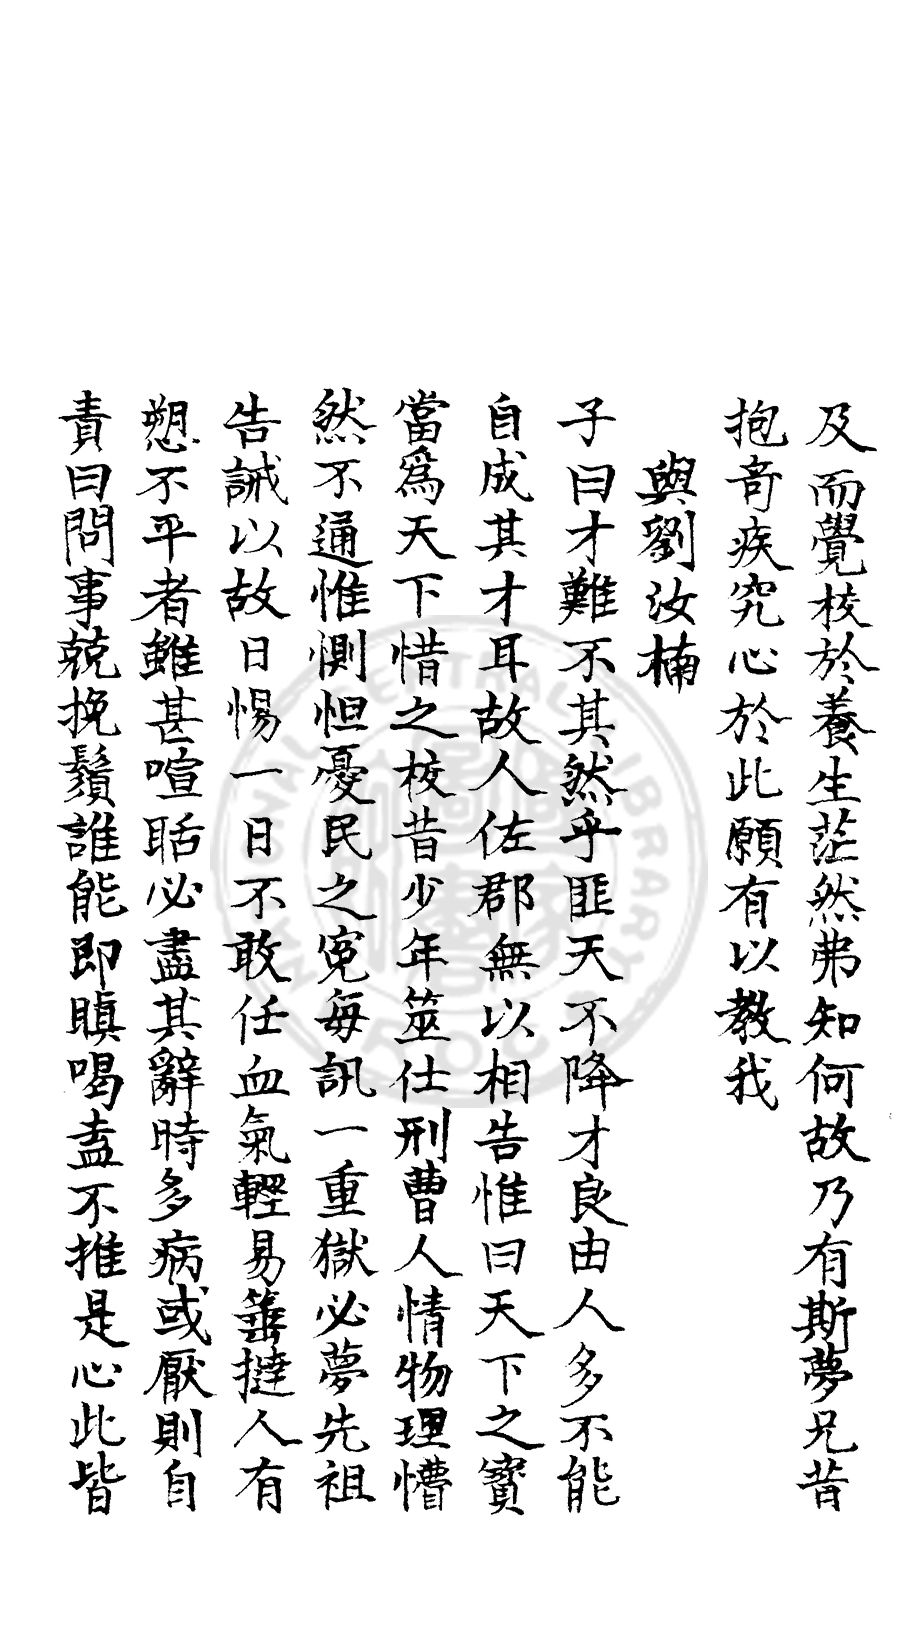 及而覺校於養生茫然弗知何故乃有斯夢兄昔
抱竒疾究心於此願有以教我
與劉汝楠
子曰才難不其然乎匪天不降才良由人多不能
自成其才耳故人佐郡無以相告惟曰天下之寳
當爲天下惜之校昔少年筮仕刑曹人情物理懵
然不通惟惻怛憂民之寃每訊一重獄必夢先祖
告誡以故日惕一日不敢任血氣輕易箠撻人有
愬不平者雖甚喧聒必盡其辭時多病或厭則自
責曰問事兢挽鬚誰能即瞋喝盍不推是心此皆
NATIONAL CENTRAL LIBRARY